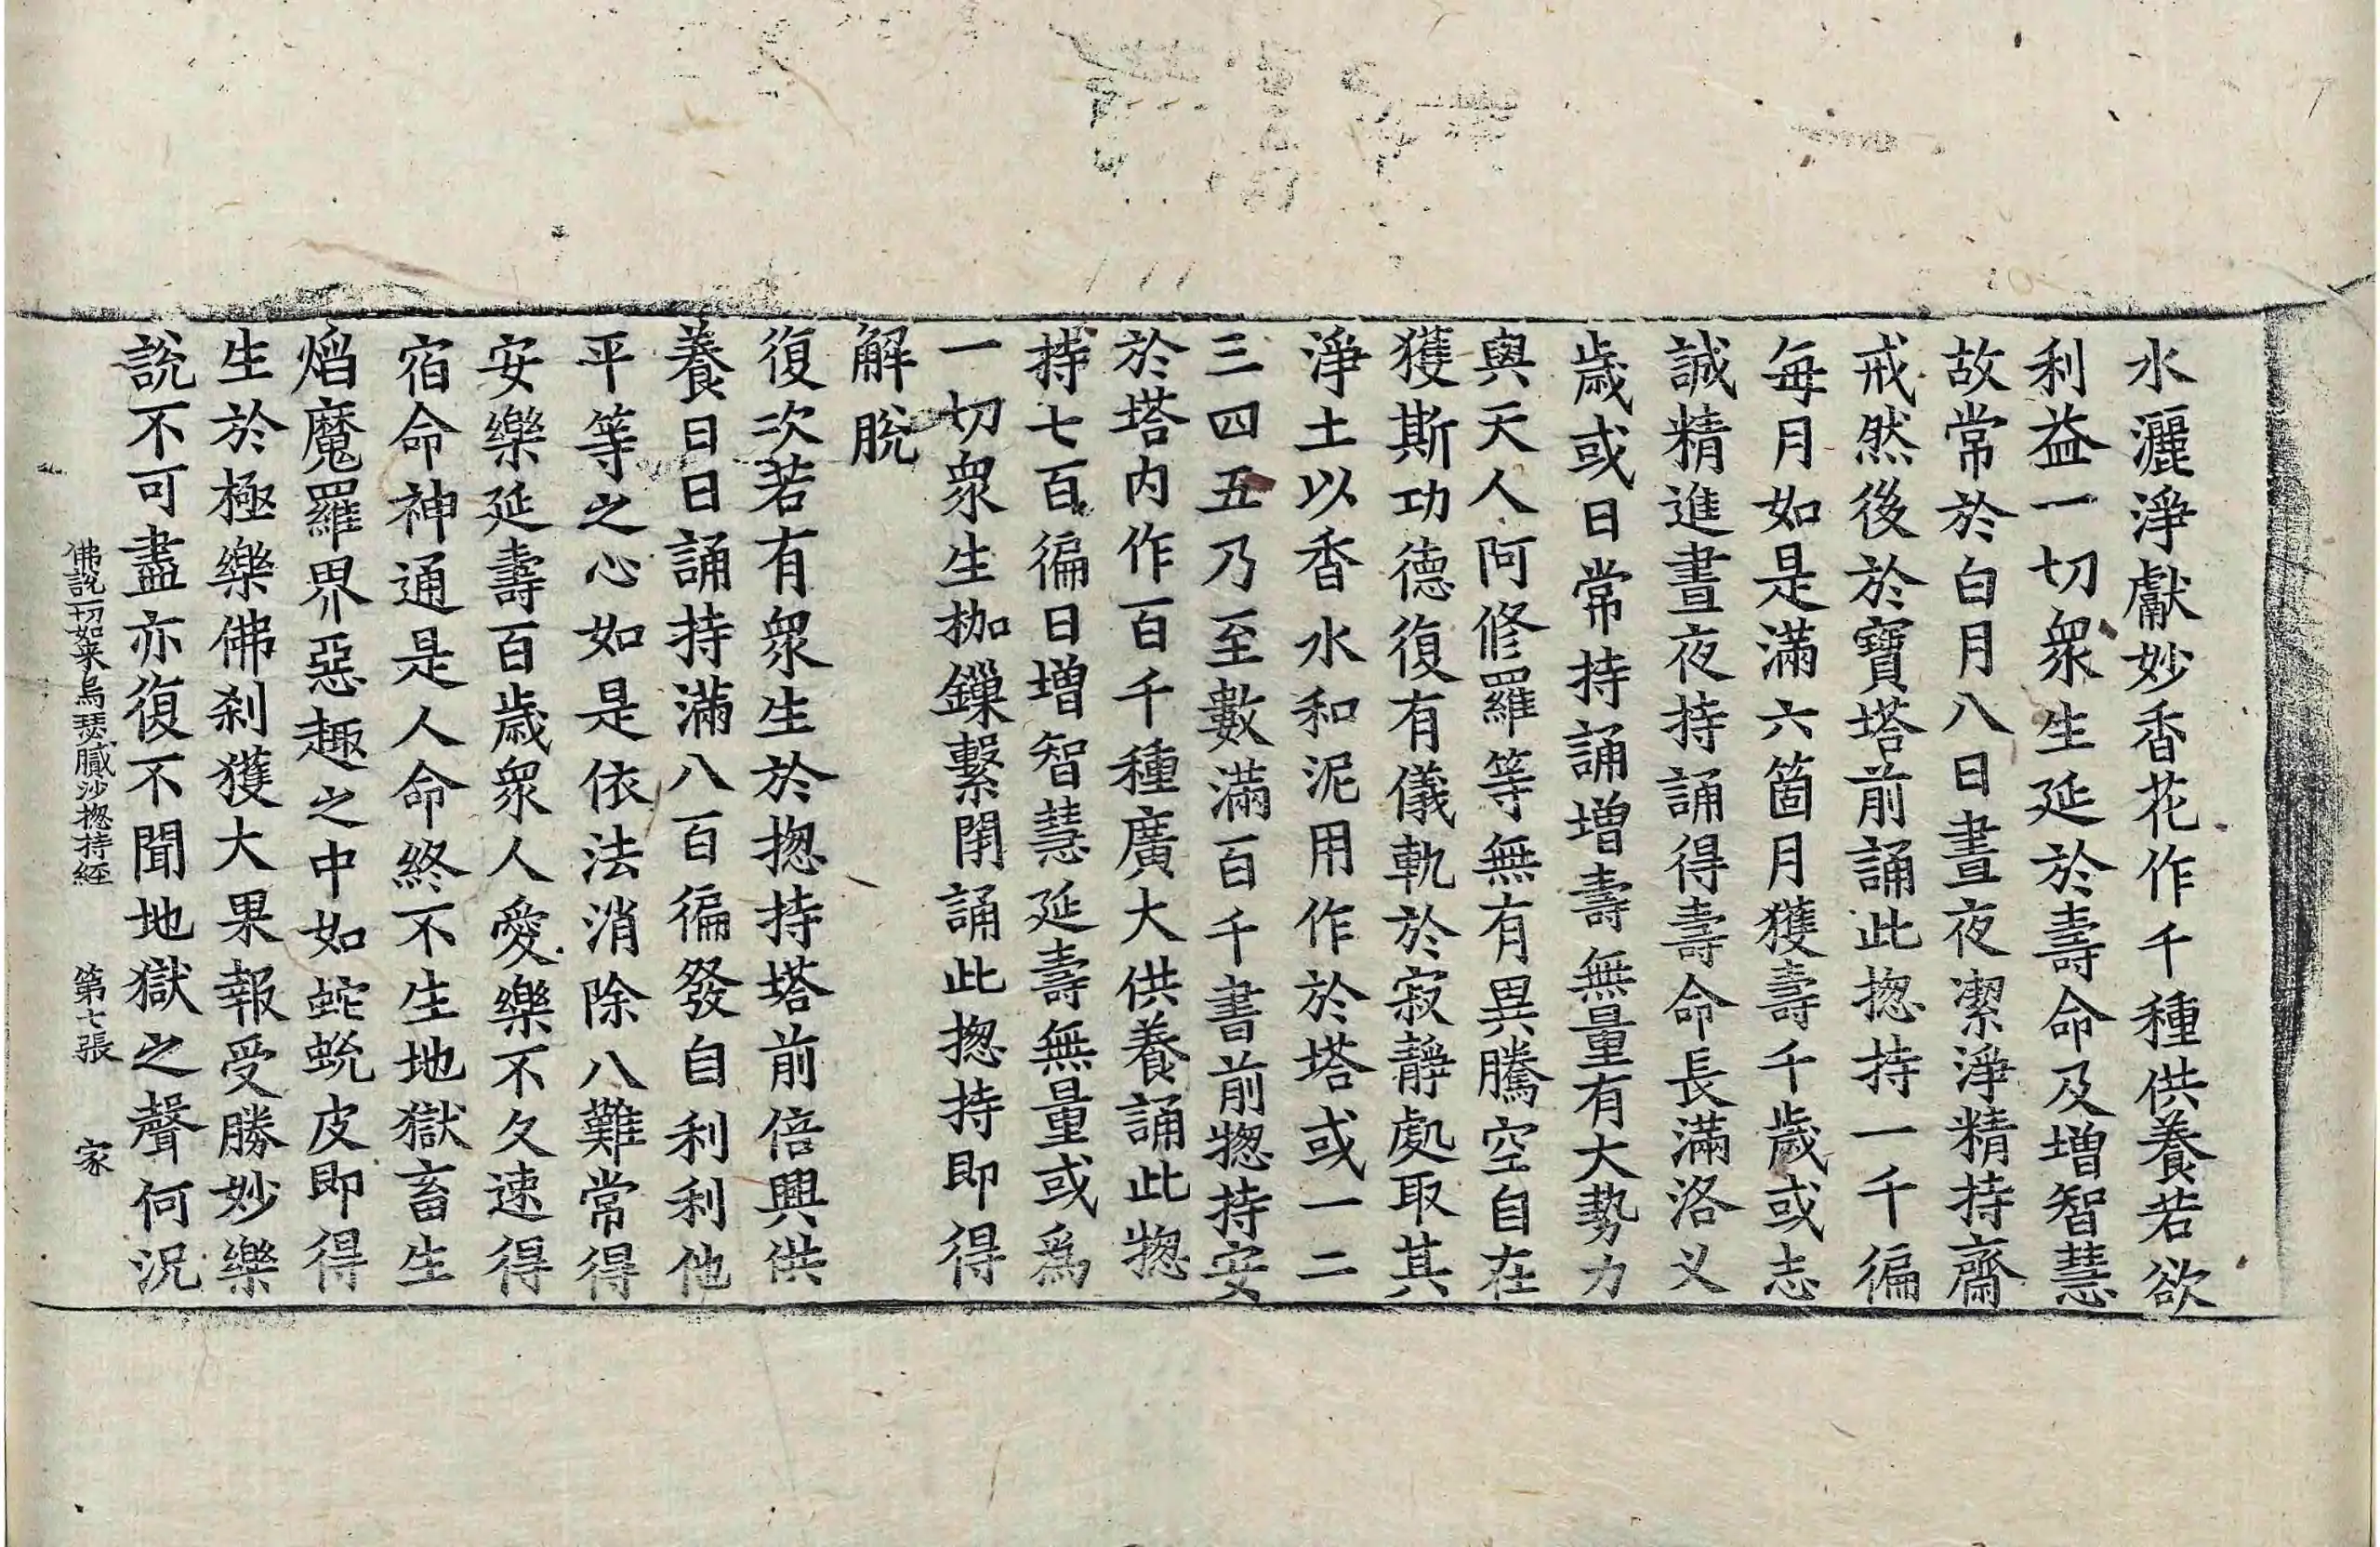 水灑淨獻妙香花作千種供養若欲
利益一切衆生延於壽命及増智慧
故常於白月八日晝夜潔淨精持齋
戒然後於寶塔前誦此揔持一千徧
每月如是滿六箇月獲壽千歲或志
誠精進晝夜持誦得壽命長滿洛义
歲或日常持誦増壽無量有大勢力
與天人阿修羅等無有異騰空自在
獲斯功德復有儀軌於寂靜處取其
淨土以香水和泥用作於塔或一二
三四五乃至數滿百千書前揔持安
於塔內作百千種廣大供養誦此揔
持七百徧日增智慧延壽無量或爲
一切衆生枷鏁繫閇誦此揔持即得
解脫
復次若有衆生於揔持塔前倍興供
養日日誦持滿八百徧發自利利他
平等之心如是依法消除八難常得
安樂延壽百歲衆人愛樂不久速得
宿命神通是人命終不生地獄畜生
焰魔羅界惡趣之中如蛇蛻皮即得
生於極樂佛剎獲大果報受勝妙樂
說不可盡亦復不聞地獄之聲何況
佛說一切如来烏瑟膩沙揔持経 第七張 家